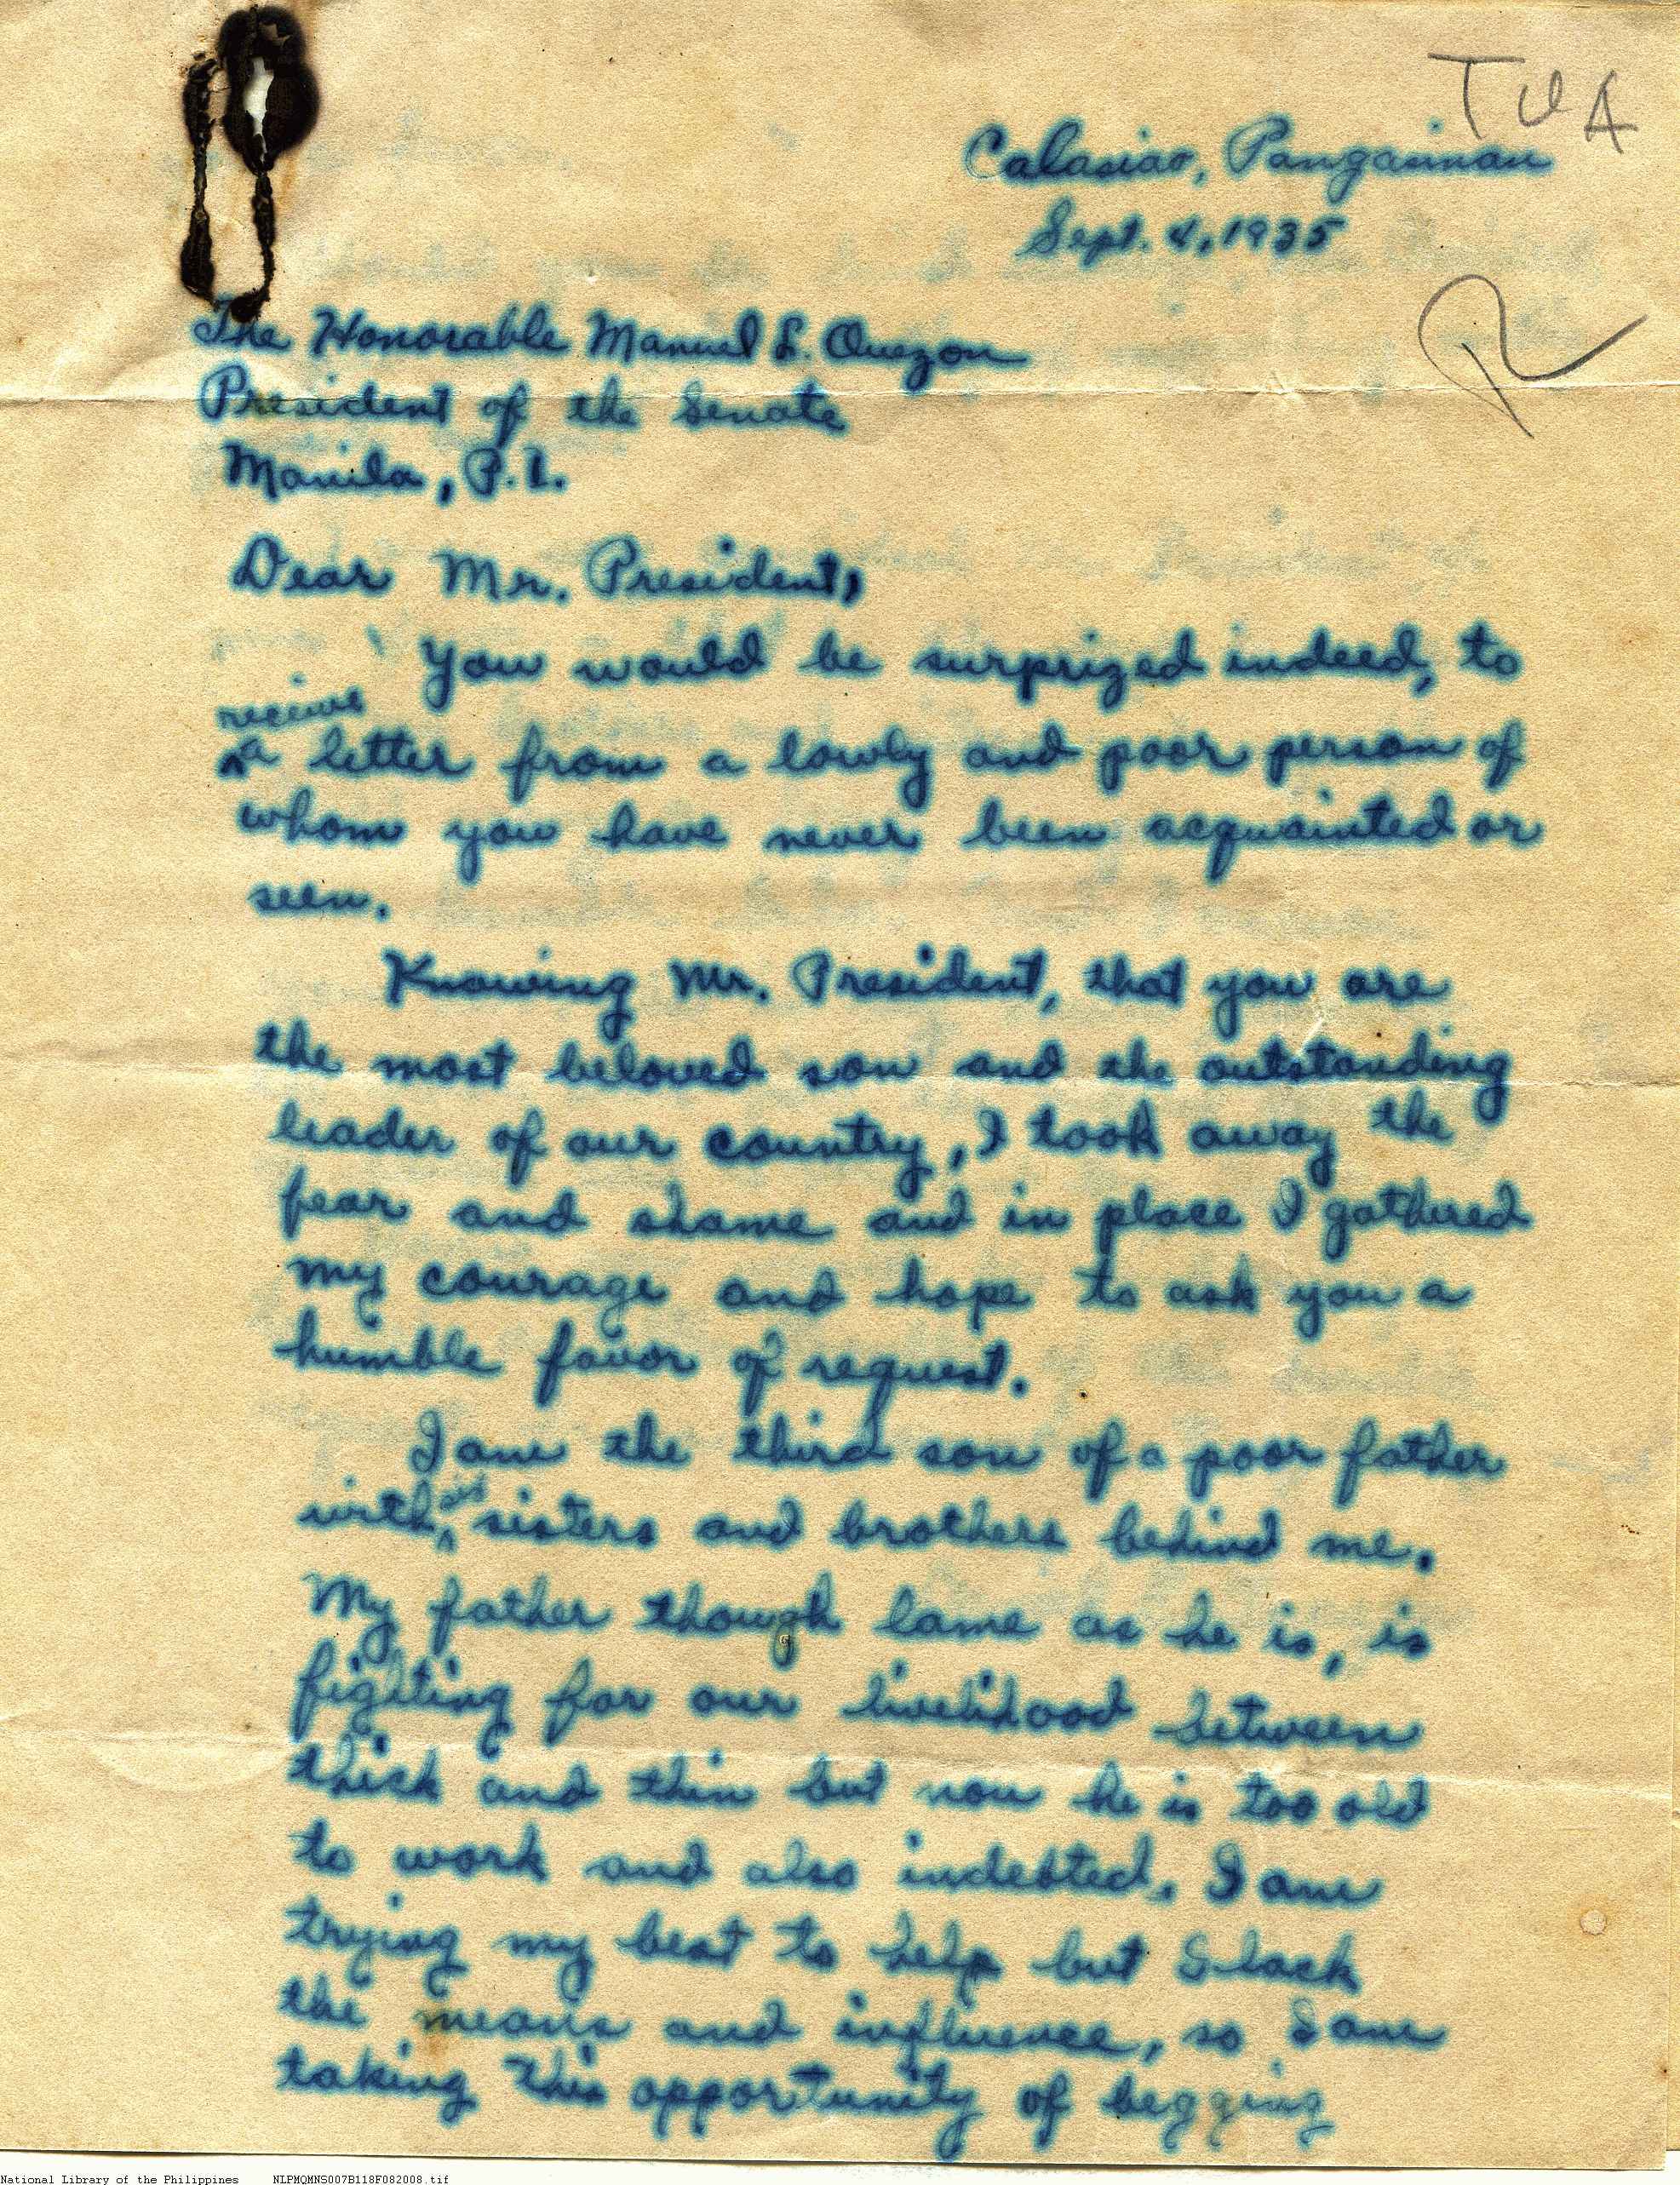 T U A
Calasiao, Pangasinan
Sept. 4, 1935
The Honorable Manuel L. Quezon
President of the Senate
Manila, P.I.
Dear Mr. President,
You would be surprized indeed, to
receive
a letter from a lowly and poor person of
whom you have never been acquainted or
seen.
Knowing Mr. President, that you are
the most beloved son and the outstanding
leader of our country, I took away the
fear and shame and in place I gathered
my courage and hope to ask you a
humble favor of request.
I am the third son of a poor father
with six sisters and brothers behind me.
My father though lame as he is, is
fighting for our livelihood between
thick and thin but now he is too old
to work and also indebted. I am
trying my best to help but I lack
the means and influence, so I am
taking this opportunity of begging
National Library of the Philippines NLPMQMNS007B118F082008.tif